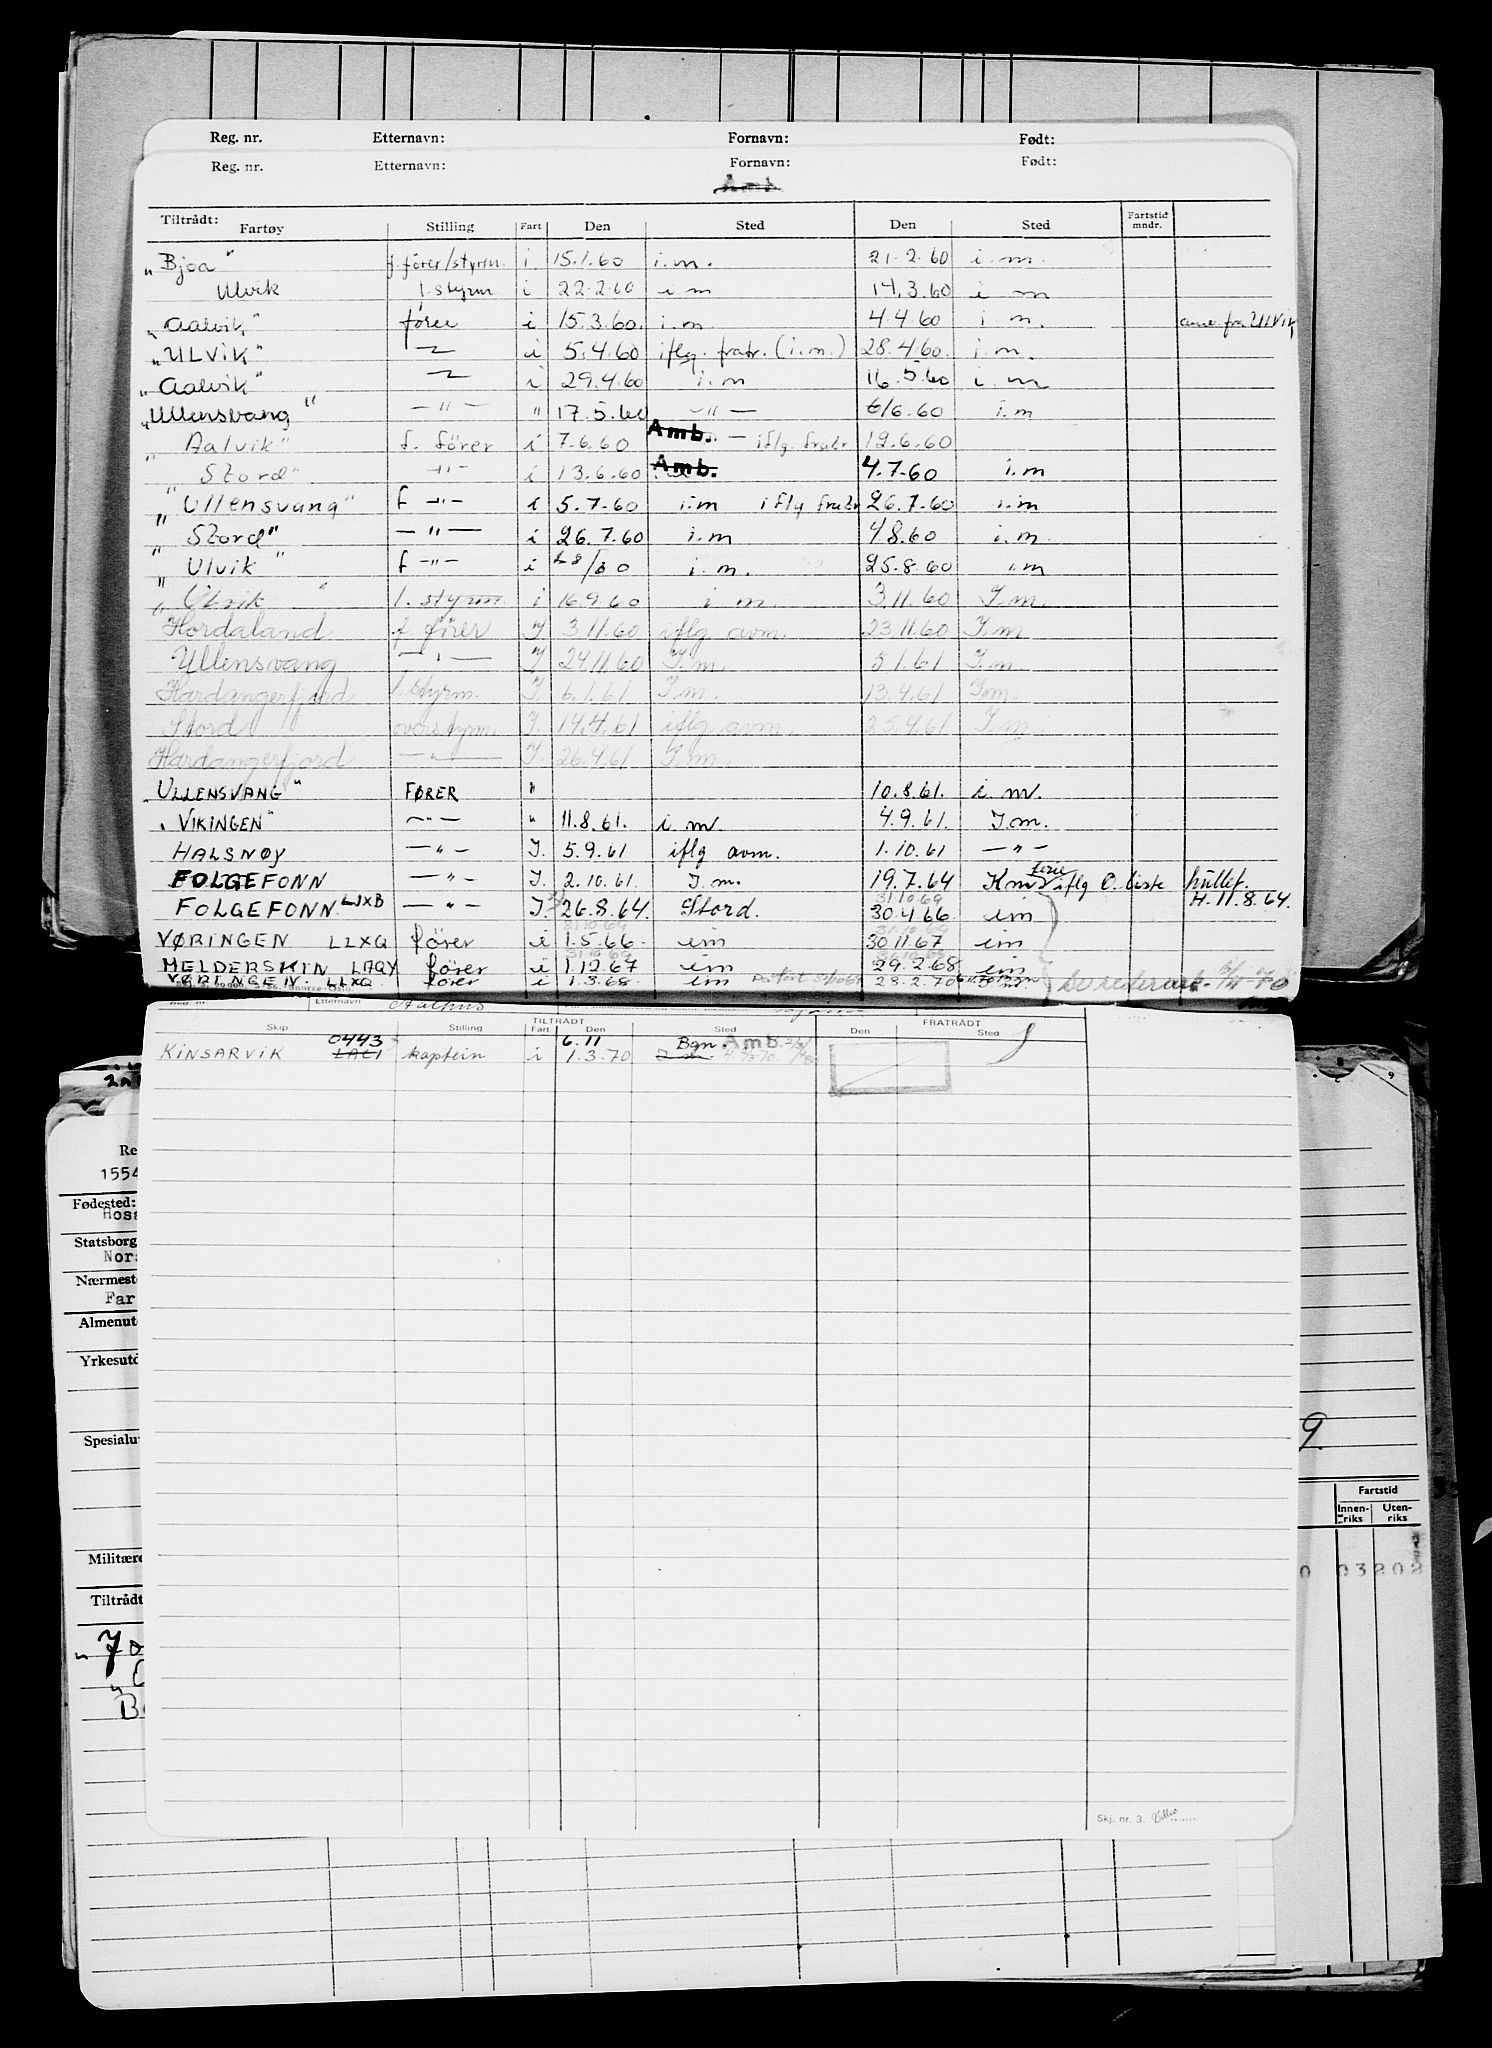 Reg. nr. Etternavn: Fornavn: Født:
Reg. nr. Etternavn: Fornavn: Født:
Amb.
Tiltrådt: Fartøy Stilling Fart Den Sted Den Sted Fartstid mndr.
"Bjoa" f. fører/styrm. i. 15.1.60 i.m. 21.2.60 i.m.
Ulvik 1. styrm i 22.2.60 i m 14.3.60 i m
"Aalvik" fører i 15.3.60. i.m 4.4.60 i.m. fra ULVIK
"ULVIK" i 5.4.60 iflg. fratr. (i.m.) 28.4.60. i.m.
"Aalvik" i 29.4.60 i.m 16.5.60 i.m
"Ullensvang" —"— " 17.5.60 —"— 6/6.60 i.m
"Aalvik" f. fører i 7.6.60 Amb. — iflg. fratr 12.6.60
"Stord" —"— i 13.6.60 Amb. 4.7.60 i.m
"Ullensvang" f —"— i 5.7.60 i.m iflg fratr 26.7.60 i.m
"Stord" —"— i 26.7.60 i.m 4.8.60 i.m
"Ulvik" f —"— i /60 i.m. 25.8.60 i.m
"Ulvik" 1. styrm i 16.9.60 i m. 3.11.60 I.m.
Hordaland f. fører I 3.11.60 iflg avm. 23.11.60 I.m
Ullensvang —"— I 24.11.60 I.m. 5.1.61 I.m
Hardangerfjord 1. styrm. I. 6.1.61 I.m. 13.4.61 I.m.
Stord overstyrm. I. 14.4.61 iflg. avm. 25.4.61 I.m
Hardangerfjord —"— I. 26.4.61 I.m.
"ULLENSVANG" FØRER " 10.8.61. i.m.
"VIKINGEN" —"— " 11.8.61. i.m. 4.9.61. I.m.
HALSNØY —"— I. 5.9.61 iflg avm. 1.10.61 —"—
FOLGEFONN —"— I. 2.10.61. I.m. 19.7.64 Km ferie iflg O. liste hullet.
FOLGEFONN LJXB —"— I. 26.8.64. Stord. 31.10.69 30.4.66 im H. 11.8.64.
VØRINGEN LLXQ fører i 1.5.66. im 30.11.67 im
MELDERSKIN LAQY fører i 1.12.67 im 29.2.68 im
VØRINGEN. LLXQ fører i 1.3.68. im 28.2.70
Reg. nr. Etternavn Aalhus
Skip Stilling TILTRÅDT Fart Den Sted FRATRÅDT Den Sted
KINSARVIK 0443 LAEI kaptein i 6.11 1.3.70 Bgn. Amb.
Re
1554
Fødested:
Hoss
Statsborg
Nors
Nærmeste
Far
Almenut
Yrkesutd
Spesialu
9.
Fartstid
Innenriks Utenriks
Militære
0 03202
Tiltrådt
"Jo
B
Skj. nr. 3.